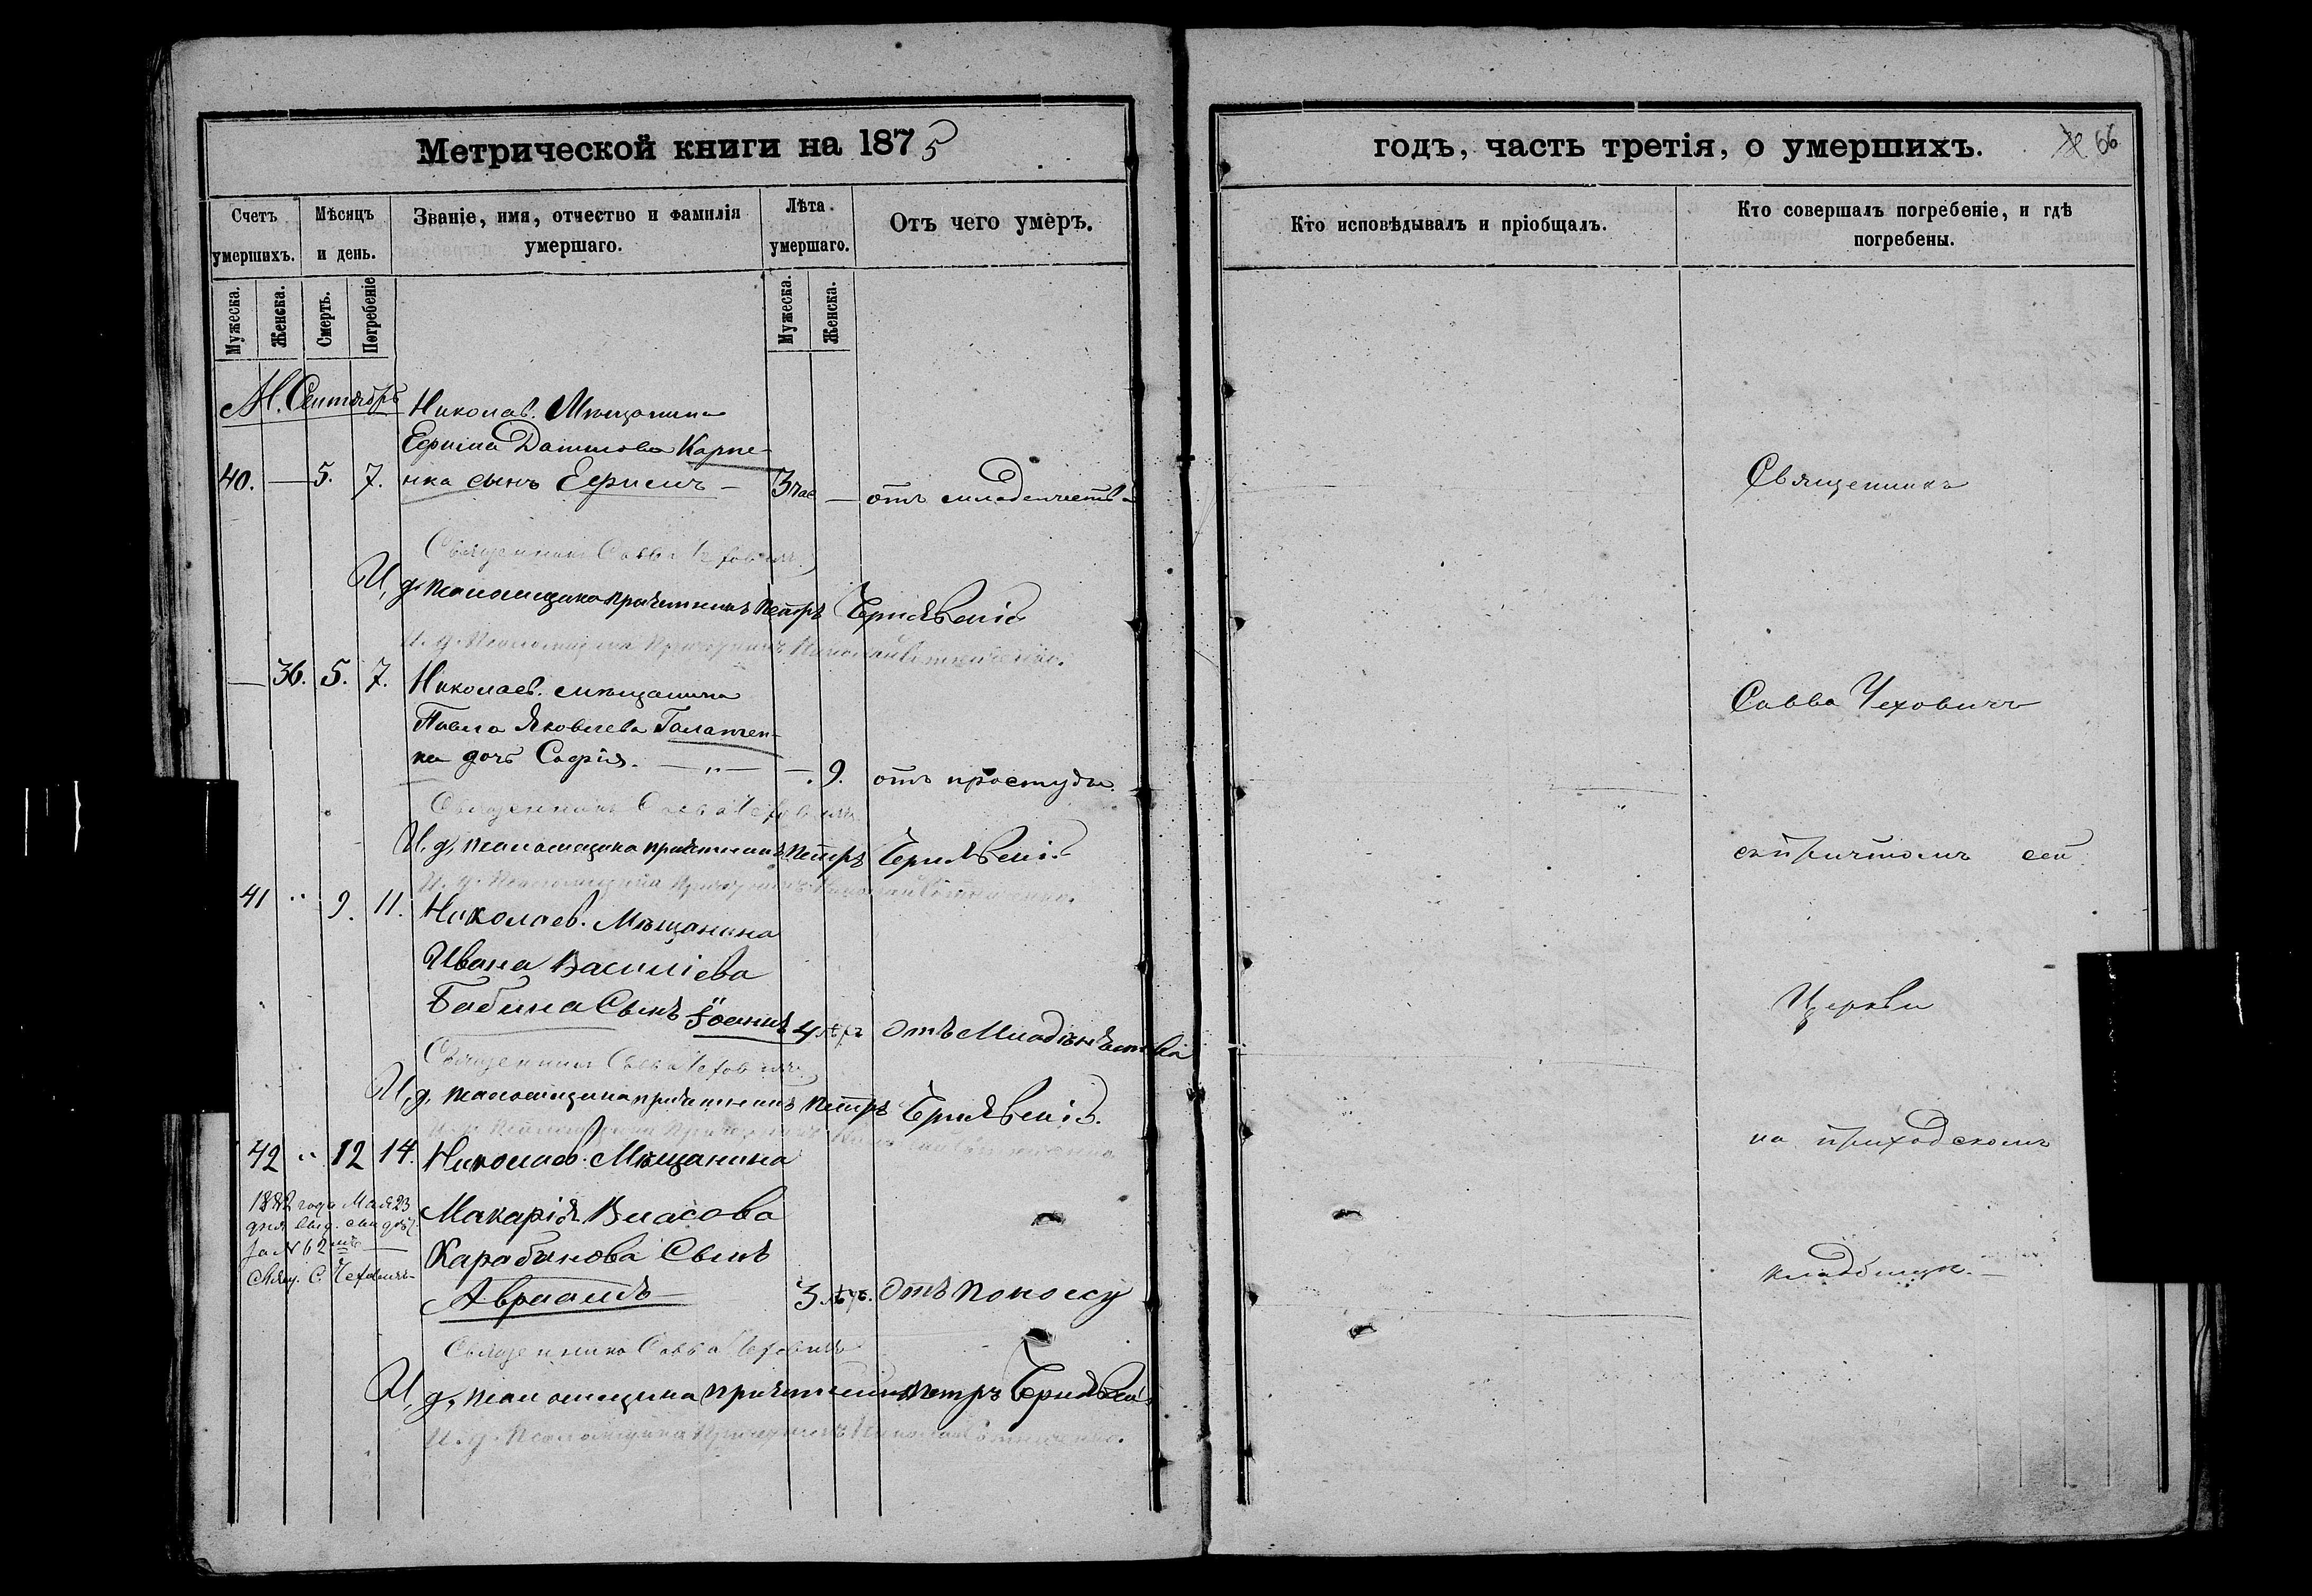 Метрической книги на 1875
Счетъ умершихъ.
Мѣсяцъ и день.
Званіе, имя, отчество и фамилія умершаго.
Лѣта умершаго.
Отъ чего умеръ.
Мужеска.
Женска.
Смерть.
Погребеніе
Мужеска.
Женска.
М. Сентябрь
Николаев. Мѣщанина
Ефима Данилова Карпе-
40. — 5. 7. нка сынъ Ефимъ — 3 — отъ младенчества
Священникъ Савва Чеховичъ
И. д. псаломщика причетникъ Петръ
И. д. Псаломщика Причетникъ Николай
— 36. 5. 7. Николаев. мѣщанина
Павла Яковлева Галатчен-
ка дочь Софія. — „ — — 9. отъ простуды
Священникъ Савва Чеховичъ
И. д. псаломщика причетникъ Петръ
И. д. Псаломщика Причетникъ Николай
41 „ 9. 11. Николаев. Мѣщанина
Ивана Василіева
Бабина Сынъ Іоаннъ 4 отъ Младенчества
Священникъ Савва Чеховичъ
И. д. псаломщика причетникъ Петръ
И. д. Псаломщика Причетникъ
42 „ 12 14. Николаев. Мѣщанина
1882 года Мая 23
дня выд.
за № 62мъ
Свящ. С. Чеховичъ
Макарія Власова
Карабанова Сынъ
Авраамъ 3 отъ поносу
Священникъ Савва Чеховичъ
И. д. псаломщика причетникъ Петръ
И. д. Псаломщика Причетникъ Николай
годъ, часть третія, о умершихъ.
66
Кто исповѣдывалъ и пріобщалъ.
Кто совершалъ погребеніе, и гдѣ погребены.
Священникъ
Савва Чеховичъ
съ причтомъ сей
Церкви
на приходскомъ
кладбищѣ. —